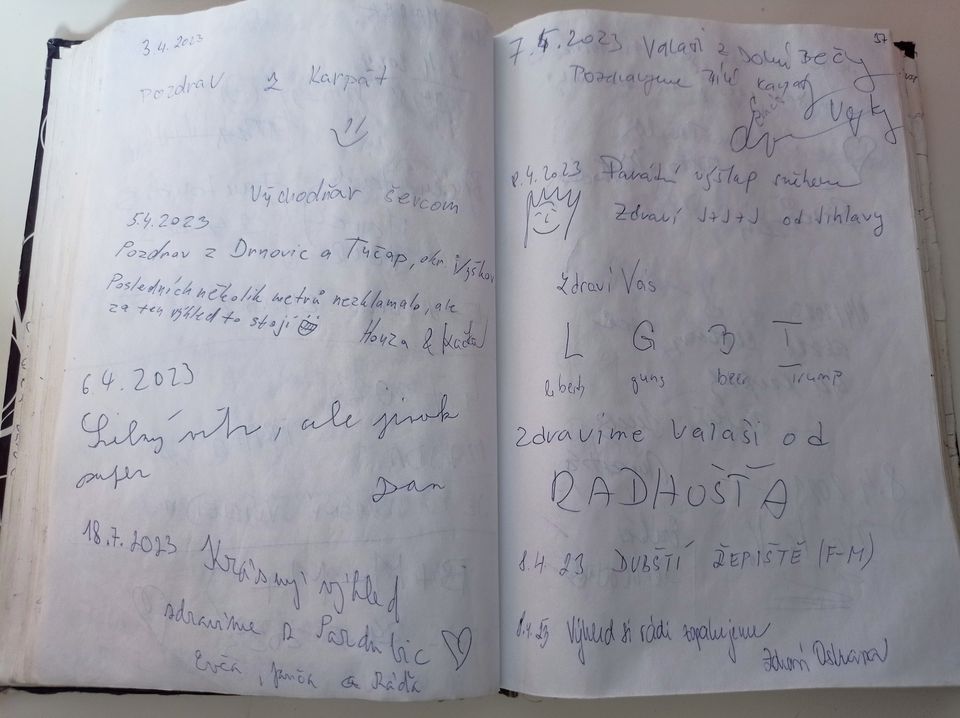 3.4.2023
Pozdrav z Karpát
Východňár šercom
5.4.2023
Pozdrav z Drnovic a Tučap, okr. Vyškov
Posledních několik metrů nezklamalo, ale
za ten výhled to stojí
Honza & Kačka
6.4.2023
Silný vítr, ale jinak
super
Dan
18.7.2023 Krásný výhled
zdravíme z Pardubic
Evča, Janča a Káďa
57
7.4.2023 Valaši z Dolní Bečvy
Pozdravujeme
8.4.2023 Parádní výšlap sněhem
Zdraví J+J+J od Jihlavy
Zdraví Vás
L G B T
liberty guns beer Trump
Zdravíme Valaši od
RADHOŠŤA
8.4.23 DUBŠTÍ ŘEPIŠTĚ (F-M)
8.4.23 Výhled si rádi
zdraví Ostrava